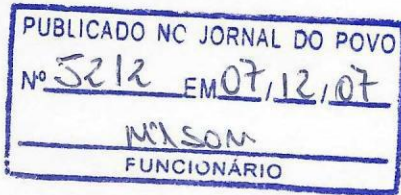 PUBLICADO NO JORNAL DO POVO
Nº 5212 EM 07, 12, 07
FUNCIONÁRIO